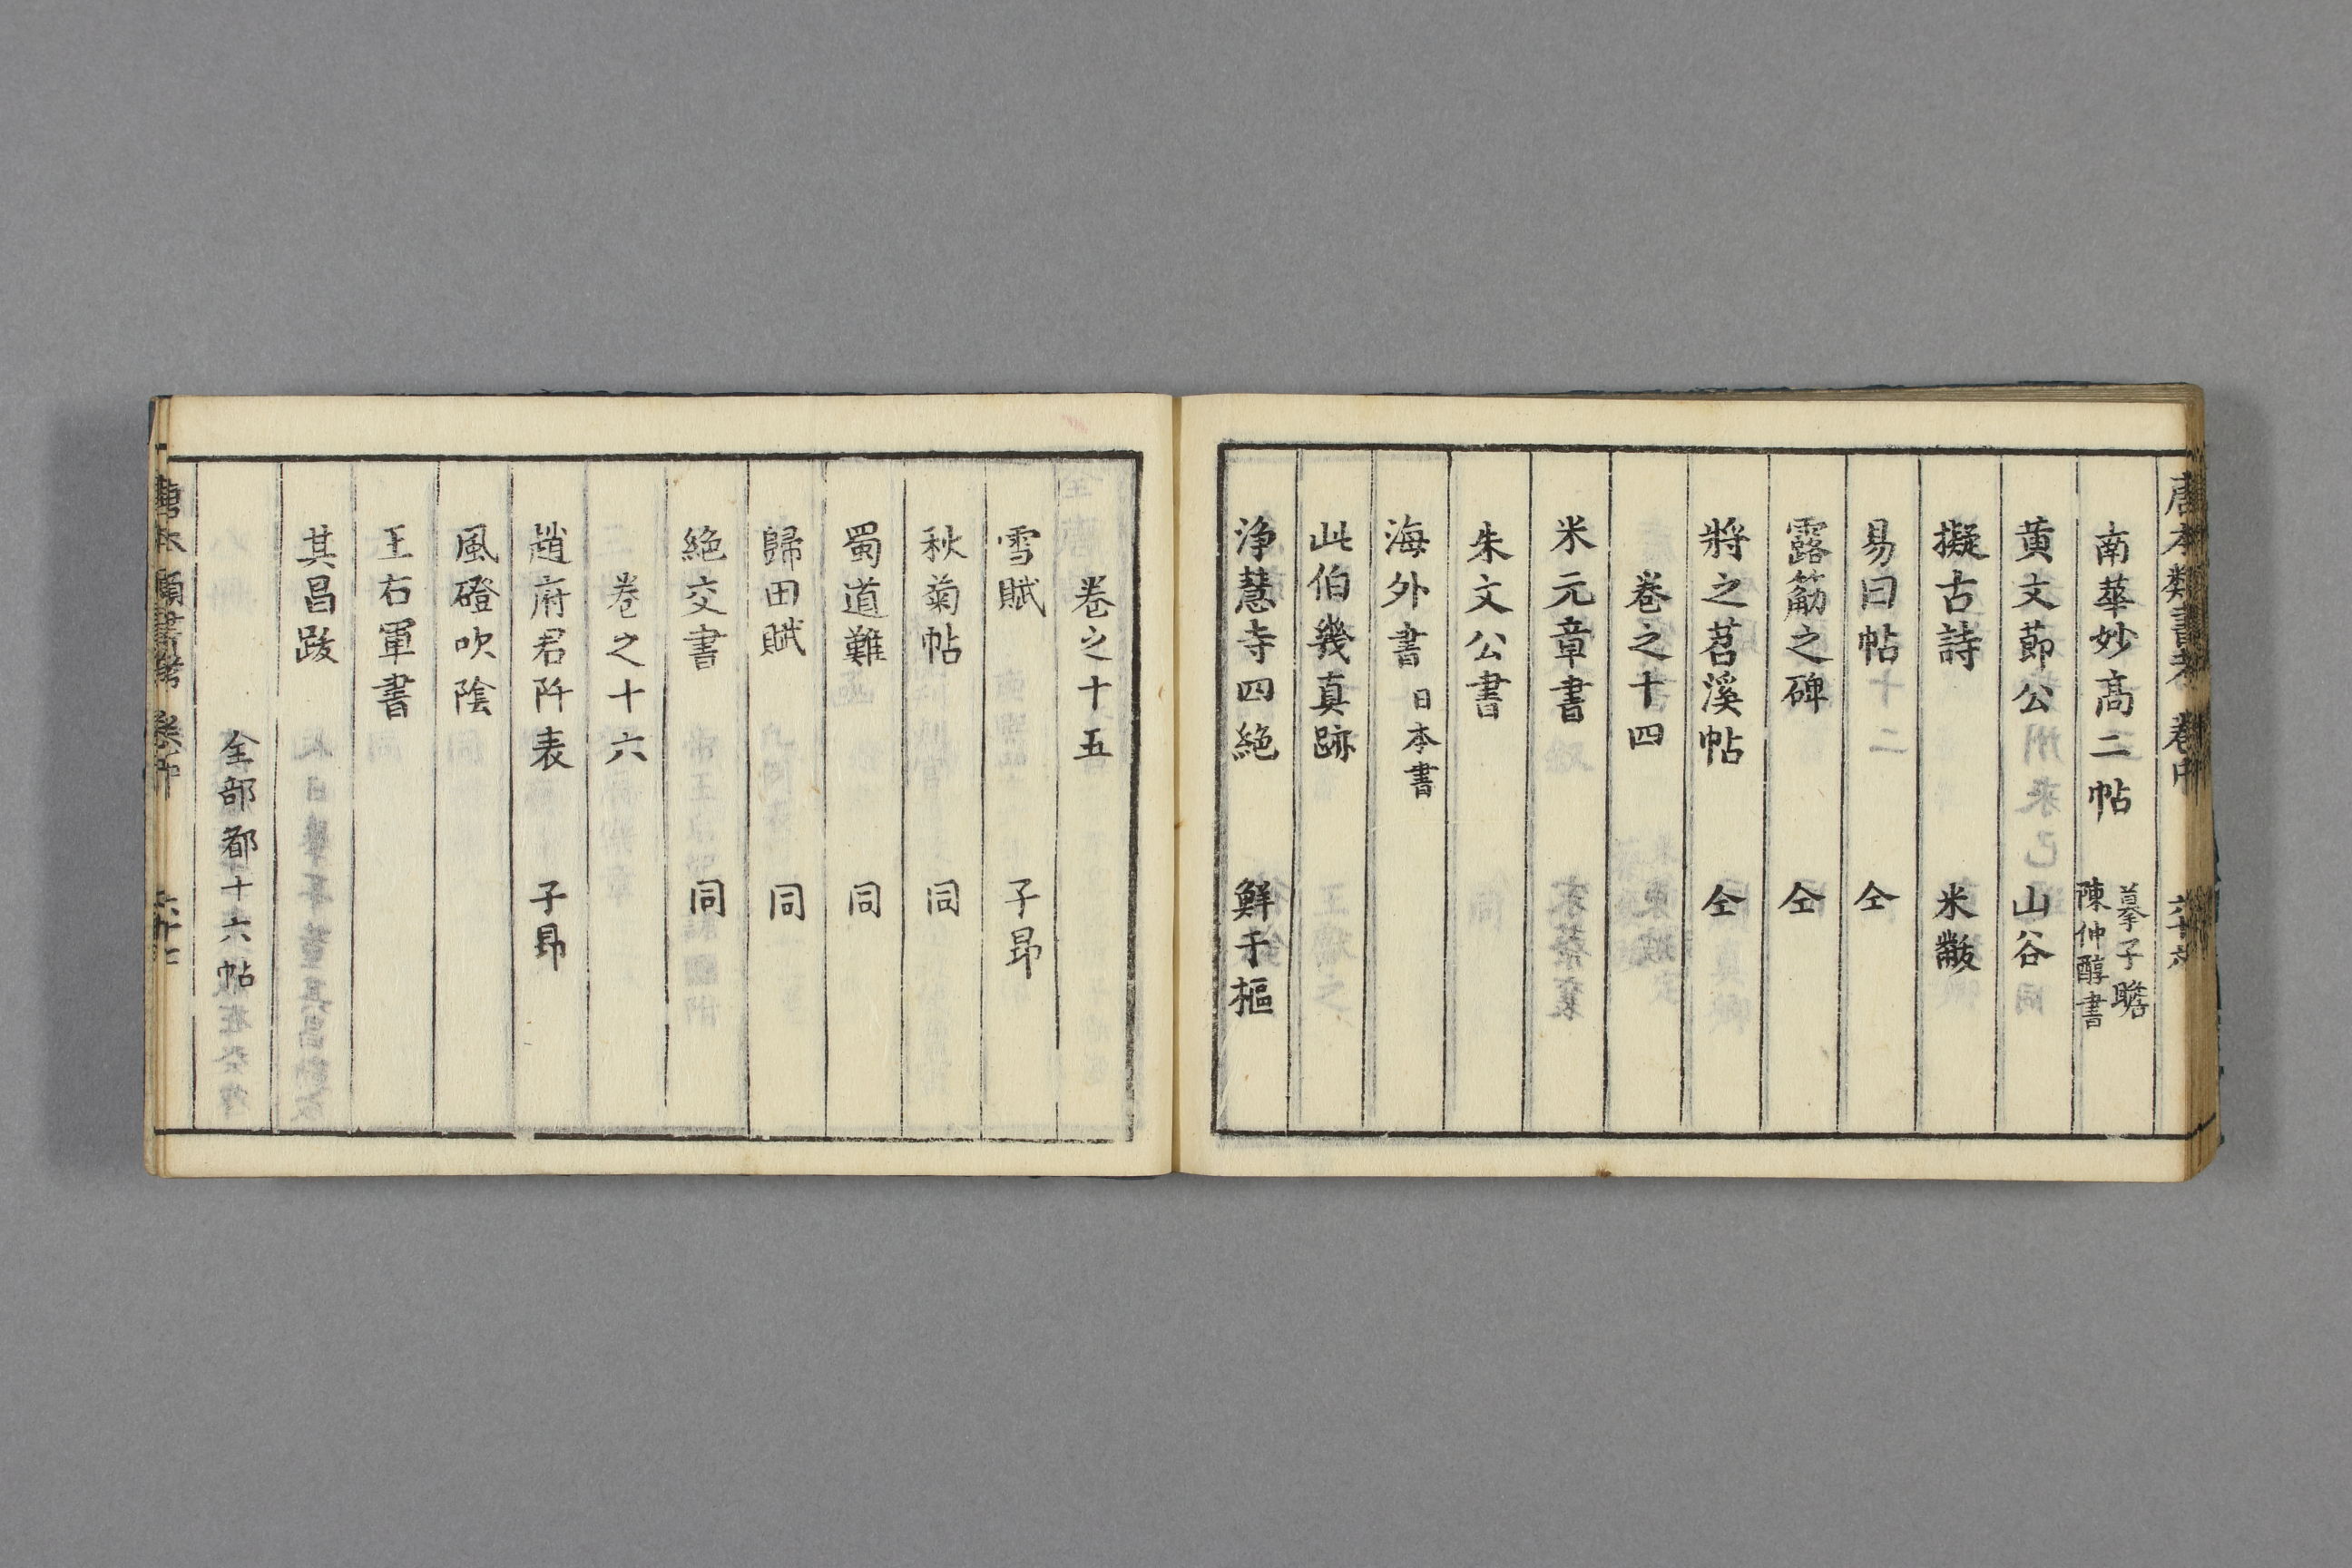 唐本類書考 卷中 六十六
南華妙高二帖 摹子瞻 陳仲醇書
黄文節公 山谷
擬古詩 米黻
易曰帖 仝
露筋之碑 仝
將之苕溪帖 仝
卷之十四
米元章書
朱文公書
海外書 日本書
此伯幾真跡
浄慧寺四絶 鮮于樞
卷之十五
雪賦 子昂
秋菊帖 同
蜀道難 同
歸田賦 同
絶交書 同
卷之十六
趙府君阡表 子昂
風磴吹陰
王右軍書
其昌跋
全部都十六帖